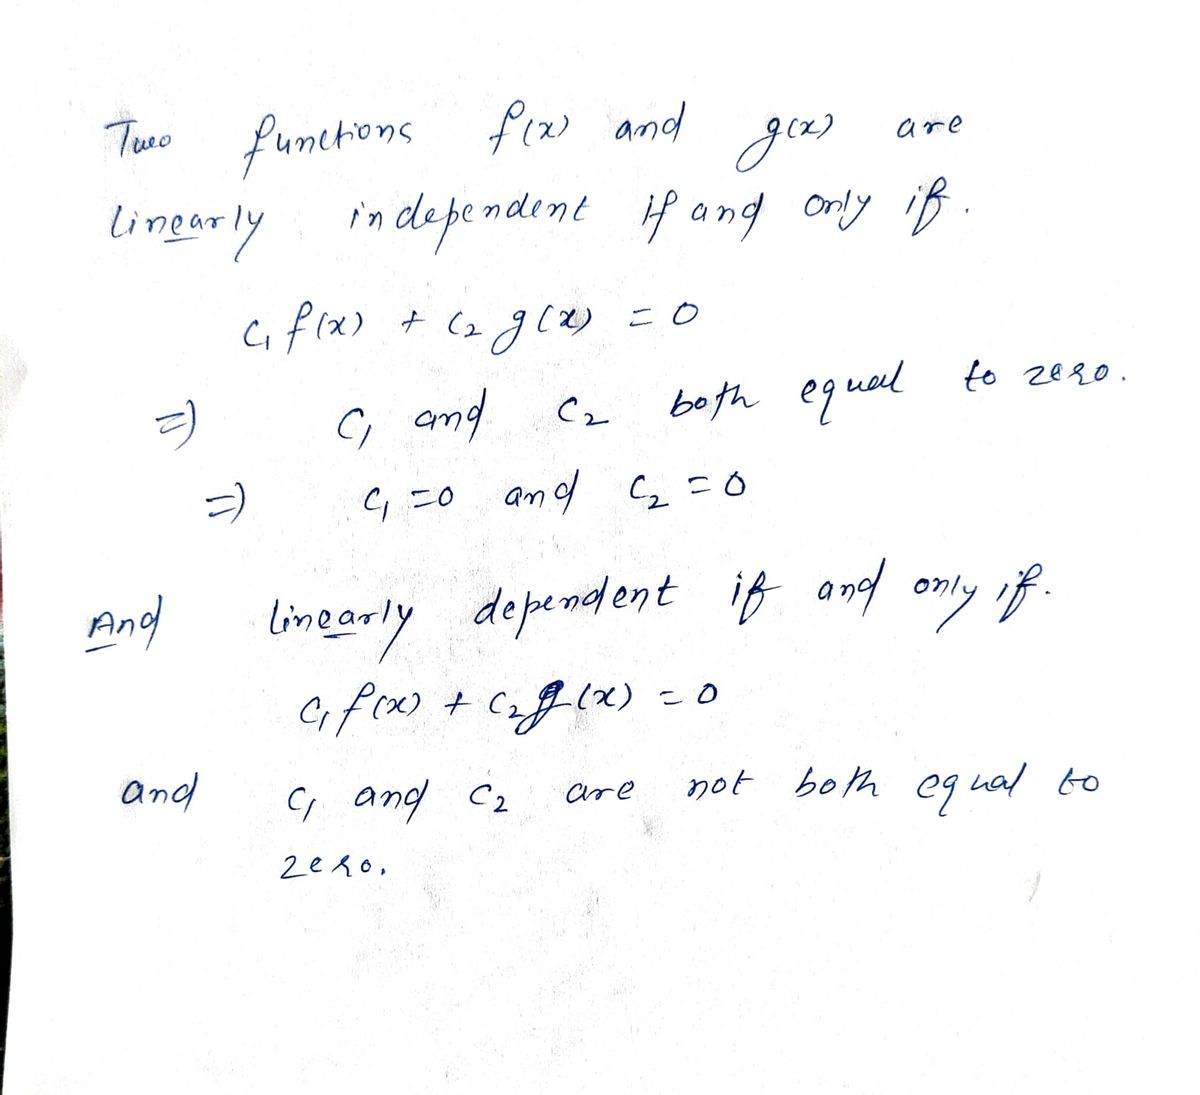 Two functions f(x) and g(x) are
linearly independent if and only if.
C₁ f(x) + C₂ g(x) = 0
=) C₁ and C₂ both equal to zero.
=) C₁ =0 and C₂ = 0
And linearly dependent if and only if.
C₁ f(x) + C₂ g(x) = 0
and C₁ and C₂ are not both equal to
zero.